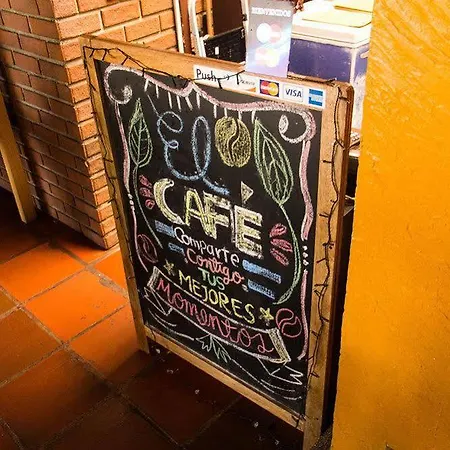 BIENVENIDOS
Push
VISA
El
CAFÉ
Comparte
Contigo
TUS
MEJORES
Momentos